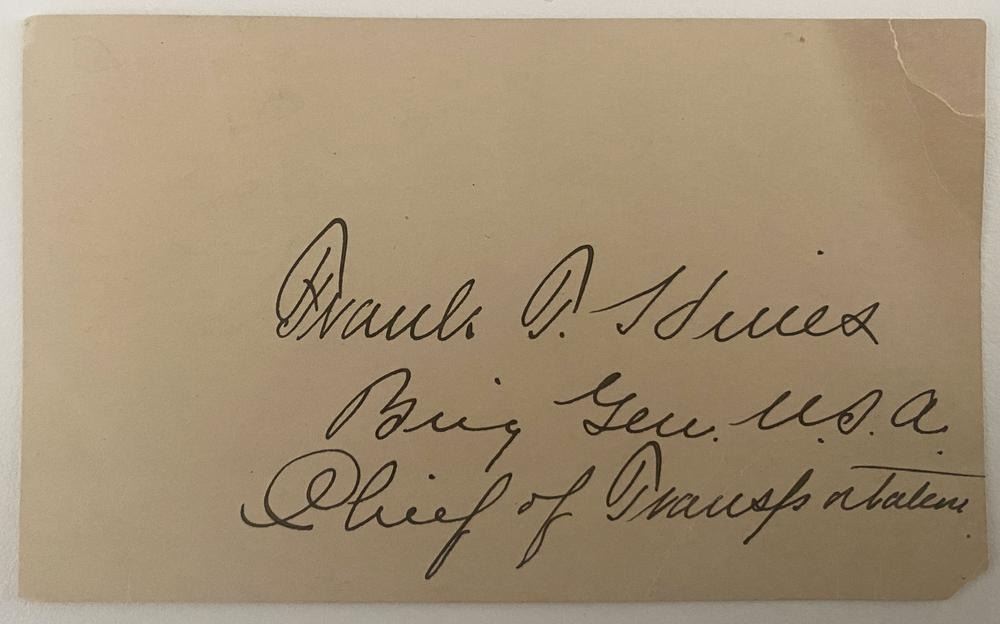 Frank T. Hines
Brig Gen. U.S.A.
Chief of Transportation